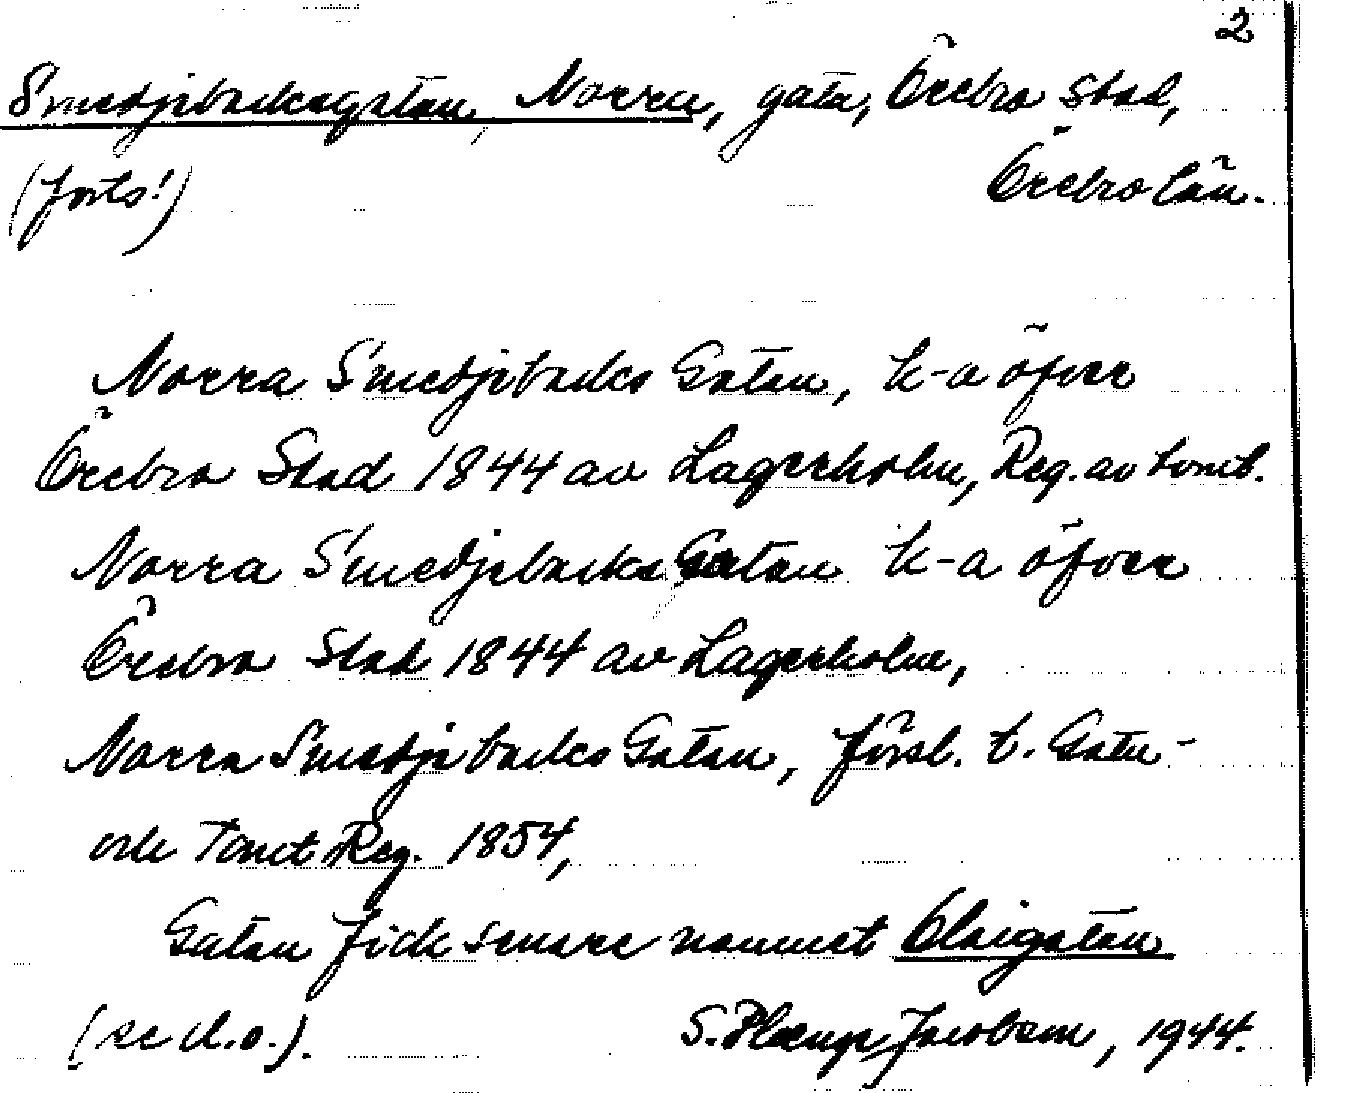 2
Smedjebacksgatan, Norra, gata, Örebro stad,
(forts!) Örebro län.
Norra Smedjebacks Gatan, k-a öfver
Örebro Stad 1844 av Lagerholm, Reg. av tomt.
Norra Smedjebacks Gatan k-a öfver
Örebro Stad 1844 av Lagerholm,
Norra Smedjebacks Gatan, försl. t. Gatu-
och Tomt Reg. 1854,
Gatan fick senare namnet Olaigatan
(se d.o.). S. Plaung Jacobsen, 1944.